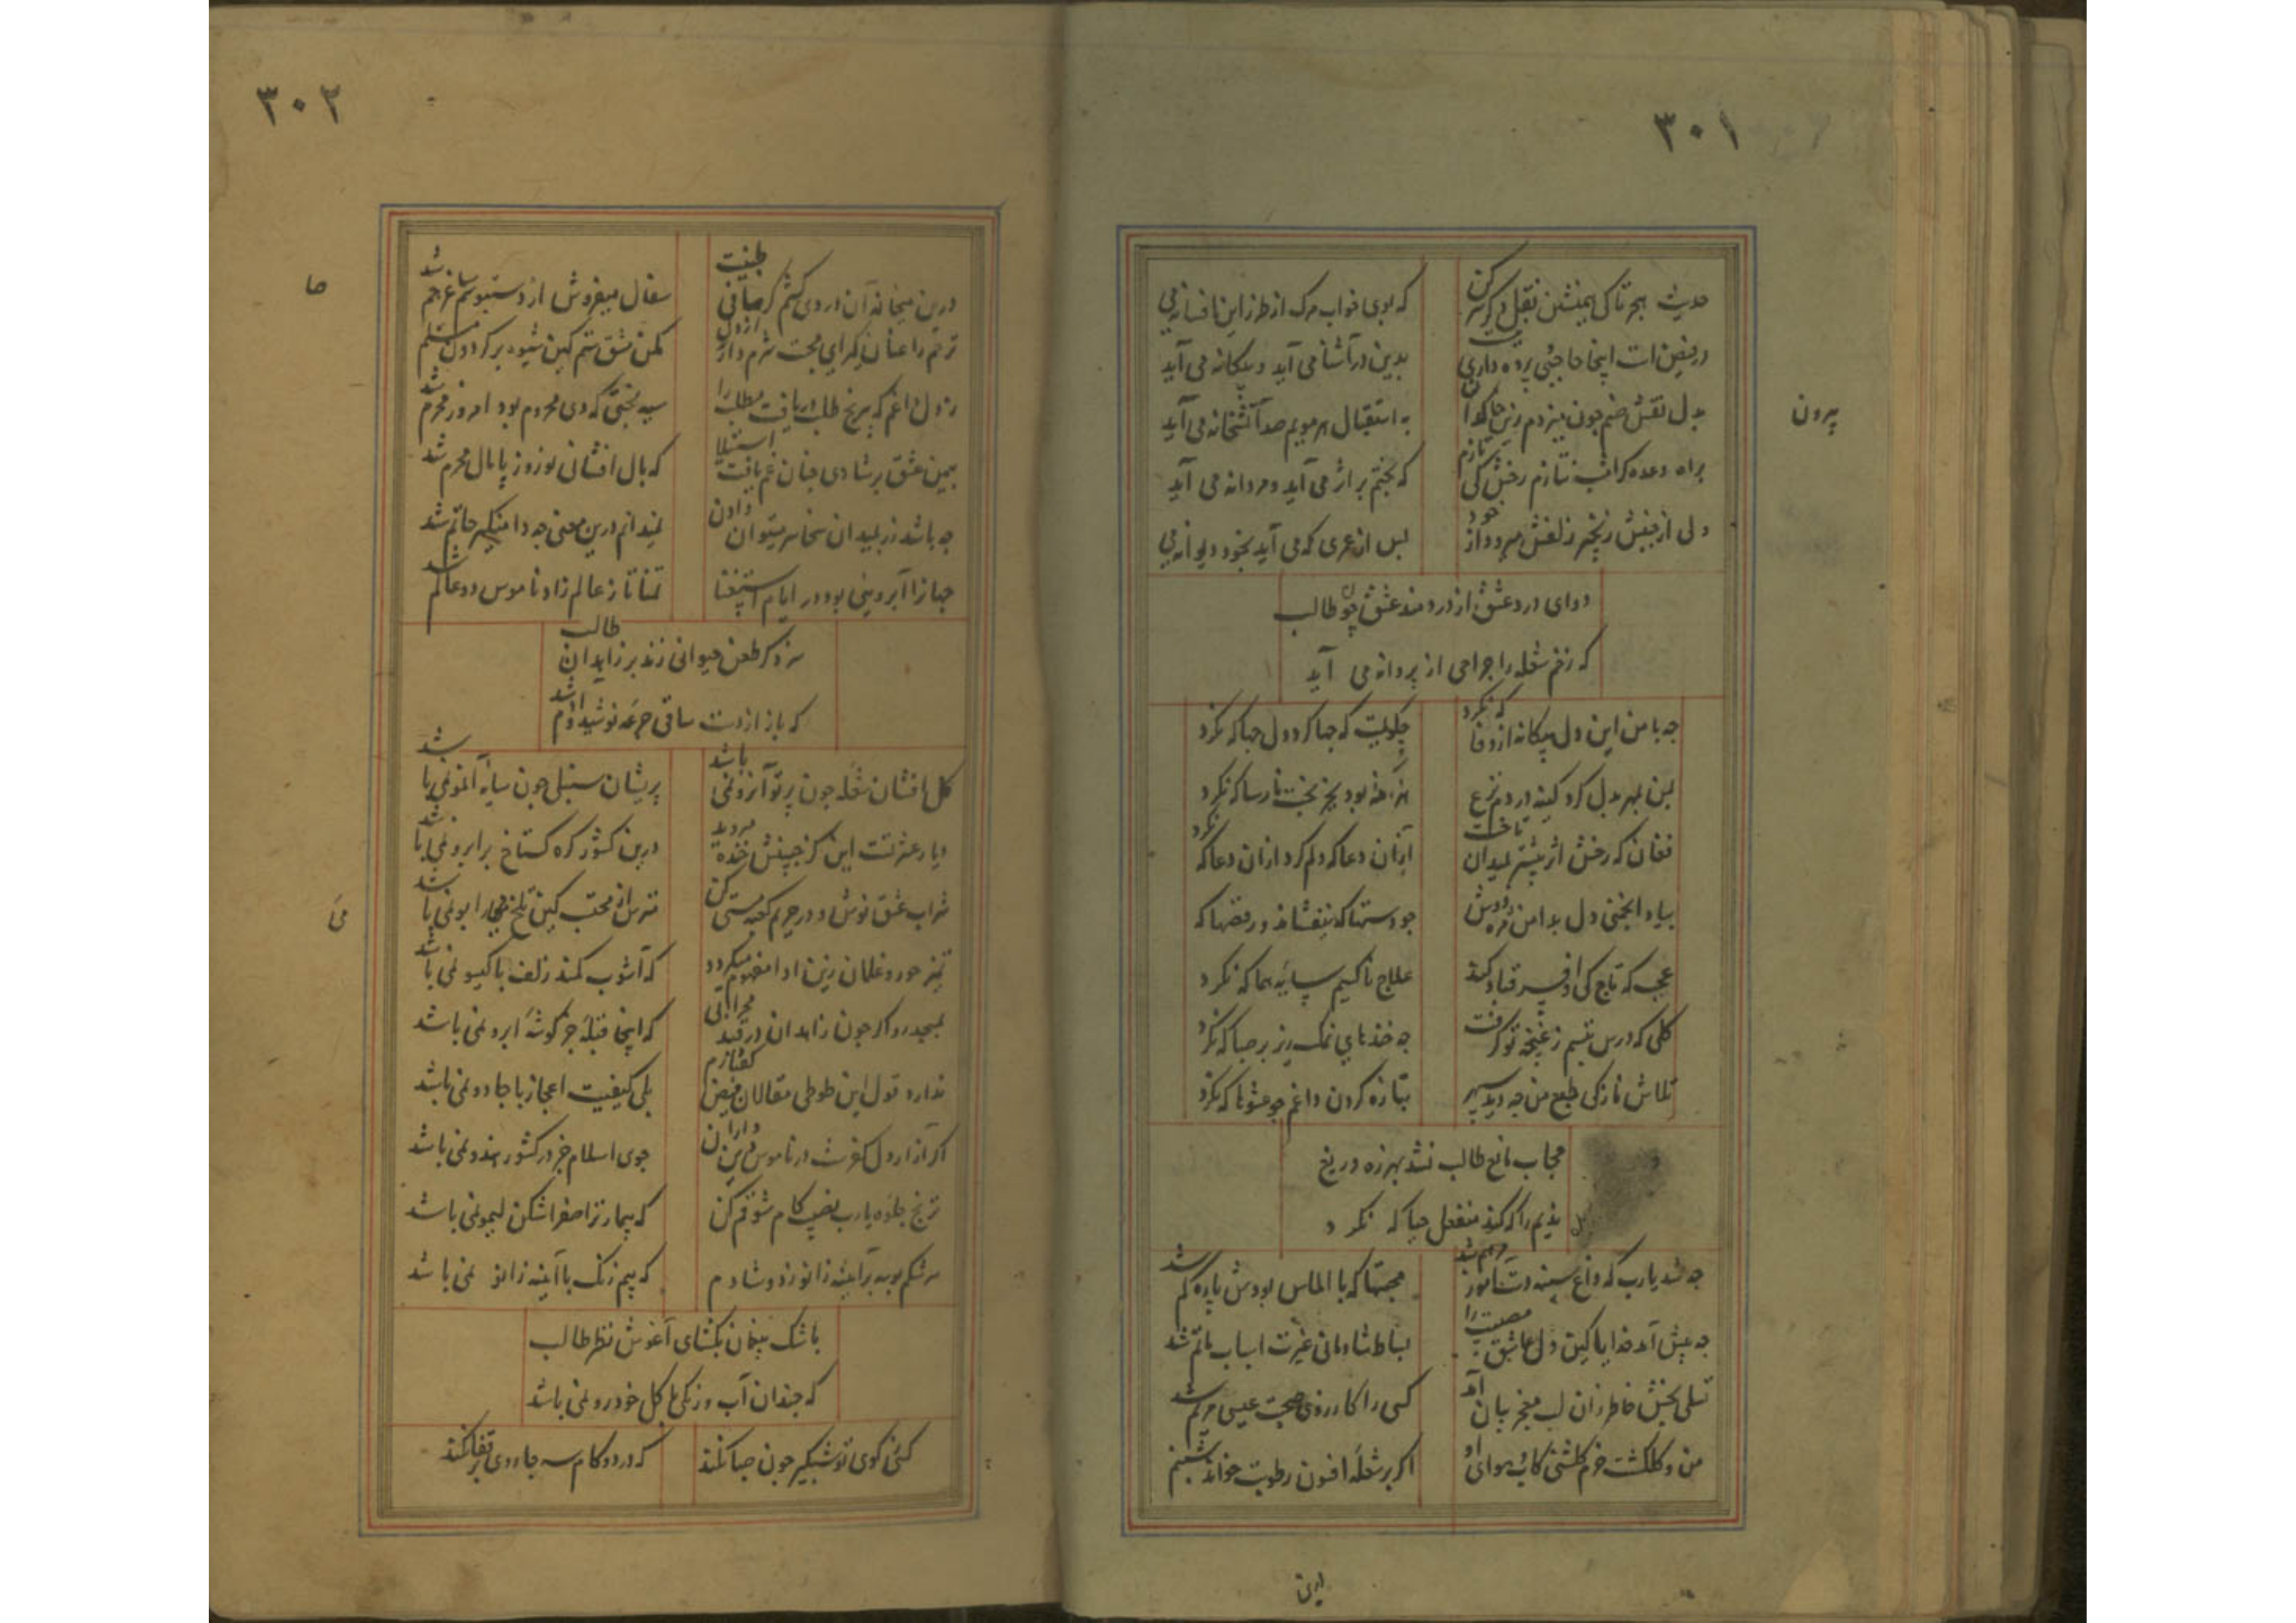 ۳۰۱
حدیث هجر تا کی همنشین نقل دگر سر کن
که بوی خواب مرک از طرز این افسانه می
در فیض است اینجا حاجبی پرده داری
بدین در آشنا می آید و بیکانه می آید
بیرون
بدل نقش صنم چون میزدم
به استقبال هر مویم صد آتشخانه می آید
براه وعده کر اشب نتازم رخش کی تازم
که بختم بر اثر می آید و مردانه می آید
دلی از جنبش زنجیر زلفش میرود از خود
پس از عمری که می آید بخود دیوانه می
دوای درد عشق از دردمند عشق جو طالب
که زخم شعله را جراحی از پروانه می آید
چه با من این دل بیکانه از وفا که نکرد
چکویمت که جفا کرد و دل جفا که نکرد
بمن بمهر بدل کرد کینه در دم نزع
بود بجز بخت نارسا که نکرد
فغان که رخش اثر بیشتر بمیدان تاخت
ازان دعا که دلم کرد ازان دعا که نکرد
بیاد انجمنی دل بدامن مژه دوش
چو دستها که نیفشاند و رقصها که
عجب که تاج کی و افسر قباد کند
علاج ناکسیم سایه هما که نکرد
کلی که درس تبسم ز غنچه تو کرفت
چه خنده های نمک ریز بر صبا که نکرد
تلاش نازکی طبع من چه دید سپهر
بتازه کردن داغم چو عشوها که نکرد
حجاب مانع طالب نشد بهرزه دریغ
ندیم را که کند منفعل حیا که نکرد
چه شد یارب که داغ سینه دست آموز مرهم شد
محبتها که با الماس بودش پاره کم شد
چه پیش آمد خدایا کین دل عاشق مصیبت را
بساط شادمانی غیرت اسباب ماتم شد
تسلی بخش خاطر زان لب معجز بیان آمد
کسی را کارزوی صحبت عیسی مریم شد
من و کلکشت خرم کلشنی کاب و هوای او
اکر بر شعله افسون رطوبت خواند شبنم شد
۳۰۲
درین میخانه آن دردی کشم کز صافی طینت
سفال میفروش از دستبوسم ساغر جم شد
ترحم را عنان کیر ای محبت شرم دار از دل
کمن مشق ستم کین شیوه بر کردون مسلم
ز دل داغم که بی رنج طلب دریافت مطلب را
سیه بختی که دی محروم بود امروز محرم شد
بمین عشق بر شادی چنان غم یافت استیلا
که بال افشانی نوروز پامال محرم شد
چه باشد زر بمیدان سخا سر میتوان دادن
نمیدانم درین معنی چه دامنکیر حاتم شد
جهانرا آبرویی بود در ایام استغنا
تمنا تا ز عالم زاد ناموس دو عالم شد
سزد کر طعن حیوانی زند بر زاهدان طالب
که باز از دست ساقی جرعه نوشید آدم شد
کل افشان شعله چون پرتو آن رو نمی باشد
پریشان سنبلی چون سایه آن مو نمی باشد
دیار عشرتست این کز جبینش خنده میروید
درین کشور کره کستاخ بر ابرو نمی باشد
شراب عشق نوش و در حریم کعبه مستی کن
مترس از محتسب کین تلخ می را بو نمی باشد
تمیز حور و غلمان زین ادا مفهوم میکردد
که آشوب کمند زلف با کیسو نمی باشد
بمسجد رو اکر چون زاهدان در قید محرابی
که اینجا قبله جز کوشه ابرو نمی باشد
ندارد قول این طوطی مقالان فیض کفتارم
بلی کیفیت اعجاز با جادو نمی باشد
اکر آزار دل کفرست در ناموس دین داران
جوی اسلام جز در کشور هندو نمی باشد
ترنج جلوه یارب نصیب کام شوقم کن
که بیمار ترا صفرا شکن لیمو نمی باشد
سرشکم بوسه بر آیینه زانو زد و شادم
که بیم زنک با آیینه زانو نمی باشد
باشک پنهان بکشای آغوش نظر طالب
که چندان آب و رنکی با کل خودرو نمی باشد
کسی کوی تو شبکیر چون صبا نکند
که در دو کام سه جا روی بر قفا نکند